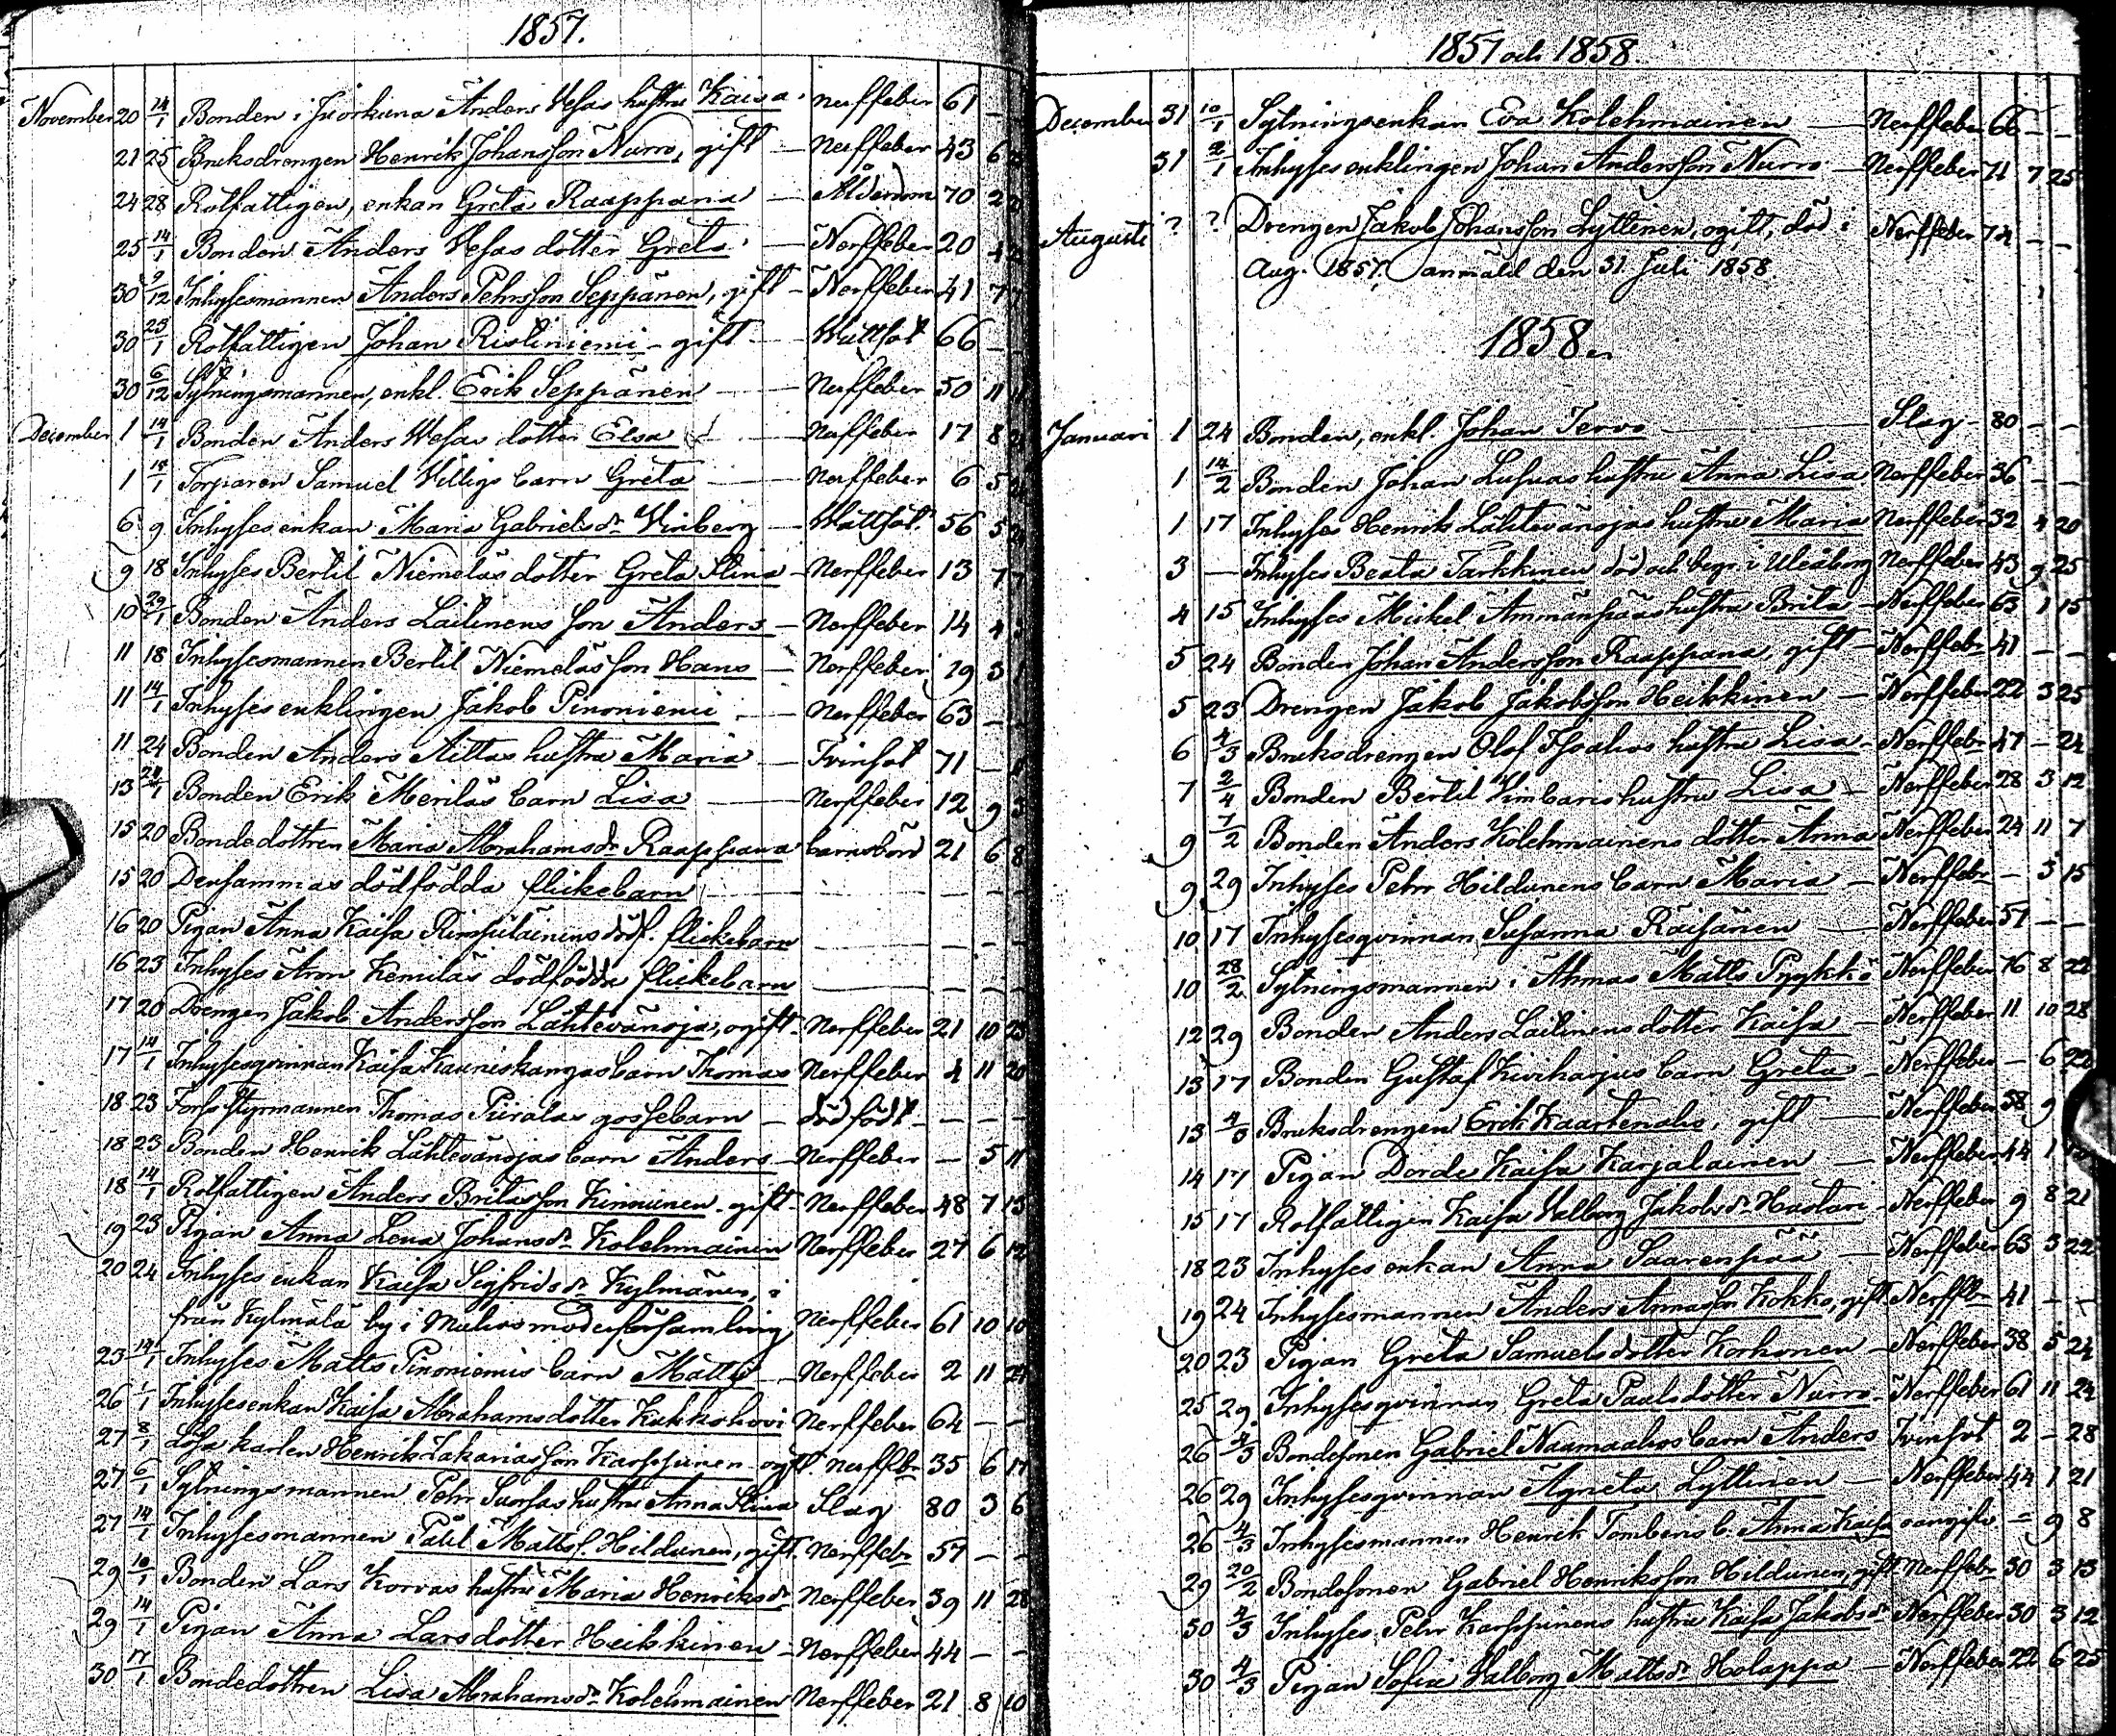 1857.
November 20 14/1 Bonden i Juorkuna Anders Vesas hustru Kaisa nerffeber 61 – –
21 25 Bruksdrengen Henrik Johansson Nurro, gift – nerffeber 43 6
24 28 Rotfattigen, enkan Greta Raappana – Ålderdom 70 2
25 14/1 Bonden Anders Vesas dotter Greta – Nerffeber 20 4
30 9/12 Inhysesmannen Anders Pehrsson Seppänen, gift – Nerffeber 41 7 7
30 25/1 Rotfattigen Johan Ristiniemi – gift – Wattsot 66 – –
30 6/12 Sytningsmannen, enkl. Erik Seppänen – Nerffeber 50 11 11
December 1 14/1 Bonden Anders Wesas dotter Elsa – Nerffeber 17 8
1 14/1 Torparen Samuel Villigs barn Greta – Nerffeber 6 5
6 9 Inhyses enkan Maria Gabrielsdr Winberg – Wattsot 56 5
9 18 Inhyses Bertil Niemeläs dotter Greta Stina – Nerffeber 13 7 7
10 29/1 Bonden Anders Lailinens son Anders – Nerffeber 14 4
11 18 Inhysesmannen Bertil Niemeläs son Hans – Nerffeber 19 3 1
11 14/1 Inhyses enklingen Jakob Pinoniemi – Nerffeber 63 – –
11 24 Bonden Anders Aittas hustru Maria – Tvinsot 71 –
13 24/1 Bonden Erik Meriläs barn Lisa – Nerffeber 12 9 3
15 20 Bondedottren Maria Abrahamsdr Raappana barnsbörd 21 6 8
15 20 Densammas dödfödda flickebarn – – – –
16 20 Pigan Anna Kaisa Rimpiläinens dödf. flickebarn – – – –
16 23 Inhyses Aron Kemiläs dödfödda flickebarn – – – –
17 20 Drengen Jakob Andersson Lähtevänoja, ogift – Nerffeber 21 10 23
17 14/1 Inhysesqvinnan Kaisa Kauniskangas barn Thomas Nerffeber 4 11 20
18 23 Fors Styrmannen Thomas Piiralas gossebarn – dödfödt – – –
18 23 Bonden Henrik Lähtevänojas barn Anders – Nerffeber – 5 11
18 14/1 Rotfattigen Anders Britasson Kinnunen – gift – Nerffeber 48 7 13
19 23 Pigan Anna Lena Johansdr Kolehmainen Nerffeber 27 6 12
20 24 Inhyses enkan Kaisa Sigfridsdr Kylmänen, i
från Kylmälä by i Muhos moderförsamling Nerffeber 61 10 10
23 14/1 Inhyses Matts Pinoniemis barn Matts – Nerffeber 2 11 24
26 1/1 Inhysesenkan Kaisa Abrahamsdotter Kukkohovi Nerffeber 64 – –
27 8/1 Lösa karlen Henrik Zakariasson Karppinen ogift. nerffebr 35 6 17
27 6/1 Sytningsmannen Pehr Suorsas hustru Anna Stina Slag 80 3 6
27 14/1 Inhysesmannen Pål Matts. Hildunen, gift. Nerffebr 57 – –
29 10/1 Bonden Lars Korvas hustru Maria Henriksdr Nerffeber 39 11 28
29 14/1 Pigan Anna Larsdotter Heikkinen – Nerffeber 44 – –
30 17/1 Bondedottren Lisa Abrahamsdr Kolehmainen Nerffeber 21 8 10
1857 och 1858
December 31 10/1 Sytningsenkan Eva Kolehmainen – Nerffeber 66 – –
31 2/1 Inhyses enklingen Johan Andersson Nurro – Nerffeber 71 7 25
Augusti ? ? Drengen Jakob Johansson Lyttinen, ogift, död i Nerffeber 74 – –
Aug. 1857, anmäld den 31 Juli 1858
1858
Januari 1 24 Bonden, enkl. Johan Tervo – Slag – 80 – –
1 14/2 Bonden Johan Luhuas hustru Anna Lisa Nerffeber 36 – –
1 17 Inhyses Henrik Lähtevänojas hustru Maria Nerffeber 32 4 20
3 – Inhyses Beata Tarkkinen död och begr. i Uleåborg Nerffeber 43 9 25
4 15 Inhyses Mickel Ämmänpääs hustru Brita – Nerffeber 63 1 15
5 24 Bonden Johan Andersson Raappana, gift – Nerffebr 41 – –
5 23 Drengen Jakob Jakobsson Heikkinen – Nerffeber 22 3 25
6 4/3 Bruksdrengen Olof Isoahos hustru Lisa – Nerffebr 47 – 24
7 2/4 Bonden Bertil Vimbaris hustru Lisa – Nerffeber 28 3 12
9 7/2 Bonden Anders Kolehmainens dotter Anna Nerffeber 24 11 7
9 29 Inhyses Pehr Hildunens barn Maria – Nerffebr – 3 15
10 17 Inhysesqvinnan Susanna Räisänen – Nerffeber 57 – –
10 28/2 Sytningsmannen i Ahmas Matts Pyykkö Nerffeber 76 8 22
12 29 Bonden Anders Lailinens dotter Kaisa – Nerffeber 11 10 28
13 17 Bonden Gustaf Kiviharjus barn Greta – Nerffeber – 6 22
13 4/3 Bruksdrengen Erik Kaartenaho, gift – Nerffeber 58 9
14 17 Pigan Dorde Kaisa Karjalainen – Nerffeber 44 1
15 17 Rotfattigen Kaisa Valborg Jakobsdr Hartari – Nerffeber 9 8 21
18 23 Inhyses enkan Anna Saarenpää – Nerffeber 63 3 22
19 24 Inhysesmannen Anders Annasson Kokko, gift Nerffbr 41 – –
20 23 Pigan Greta Samuelsdotter Korhonen – Nerffeber 38 5 24
25 29 Inhysesqvinnan Greta Paulsdotter Nurro – Nerffeber 61 11 24
26 4/3 Bondesonen Gabriel Naamaahos barn Anders Tvinsot 2 – 28
26 29 Inhysesqvinnan Agneta Lyttinen – Nerffeber 44 1 21
26 4/3 Inhysesmannen Henrik Tomberis b. Anna Kaisa oangifv. – 9 8
29 20/2 Bondesonen Gabriel Henriksson Hildunen, gift Nerffebr 30 3 13
30 4/3 Inhyses Pehr Karppinens hustru Kaisa Jakobsdr Nerffeber 30 3 12
30 4/3 Pigan Sofia Valborg Mattsdr Holappa – Nerffeber 22 6 25